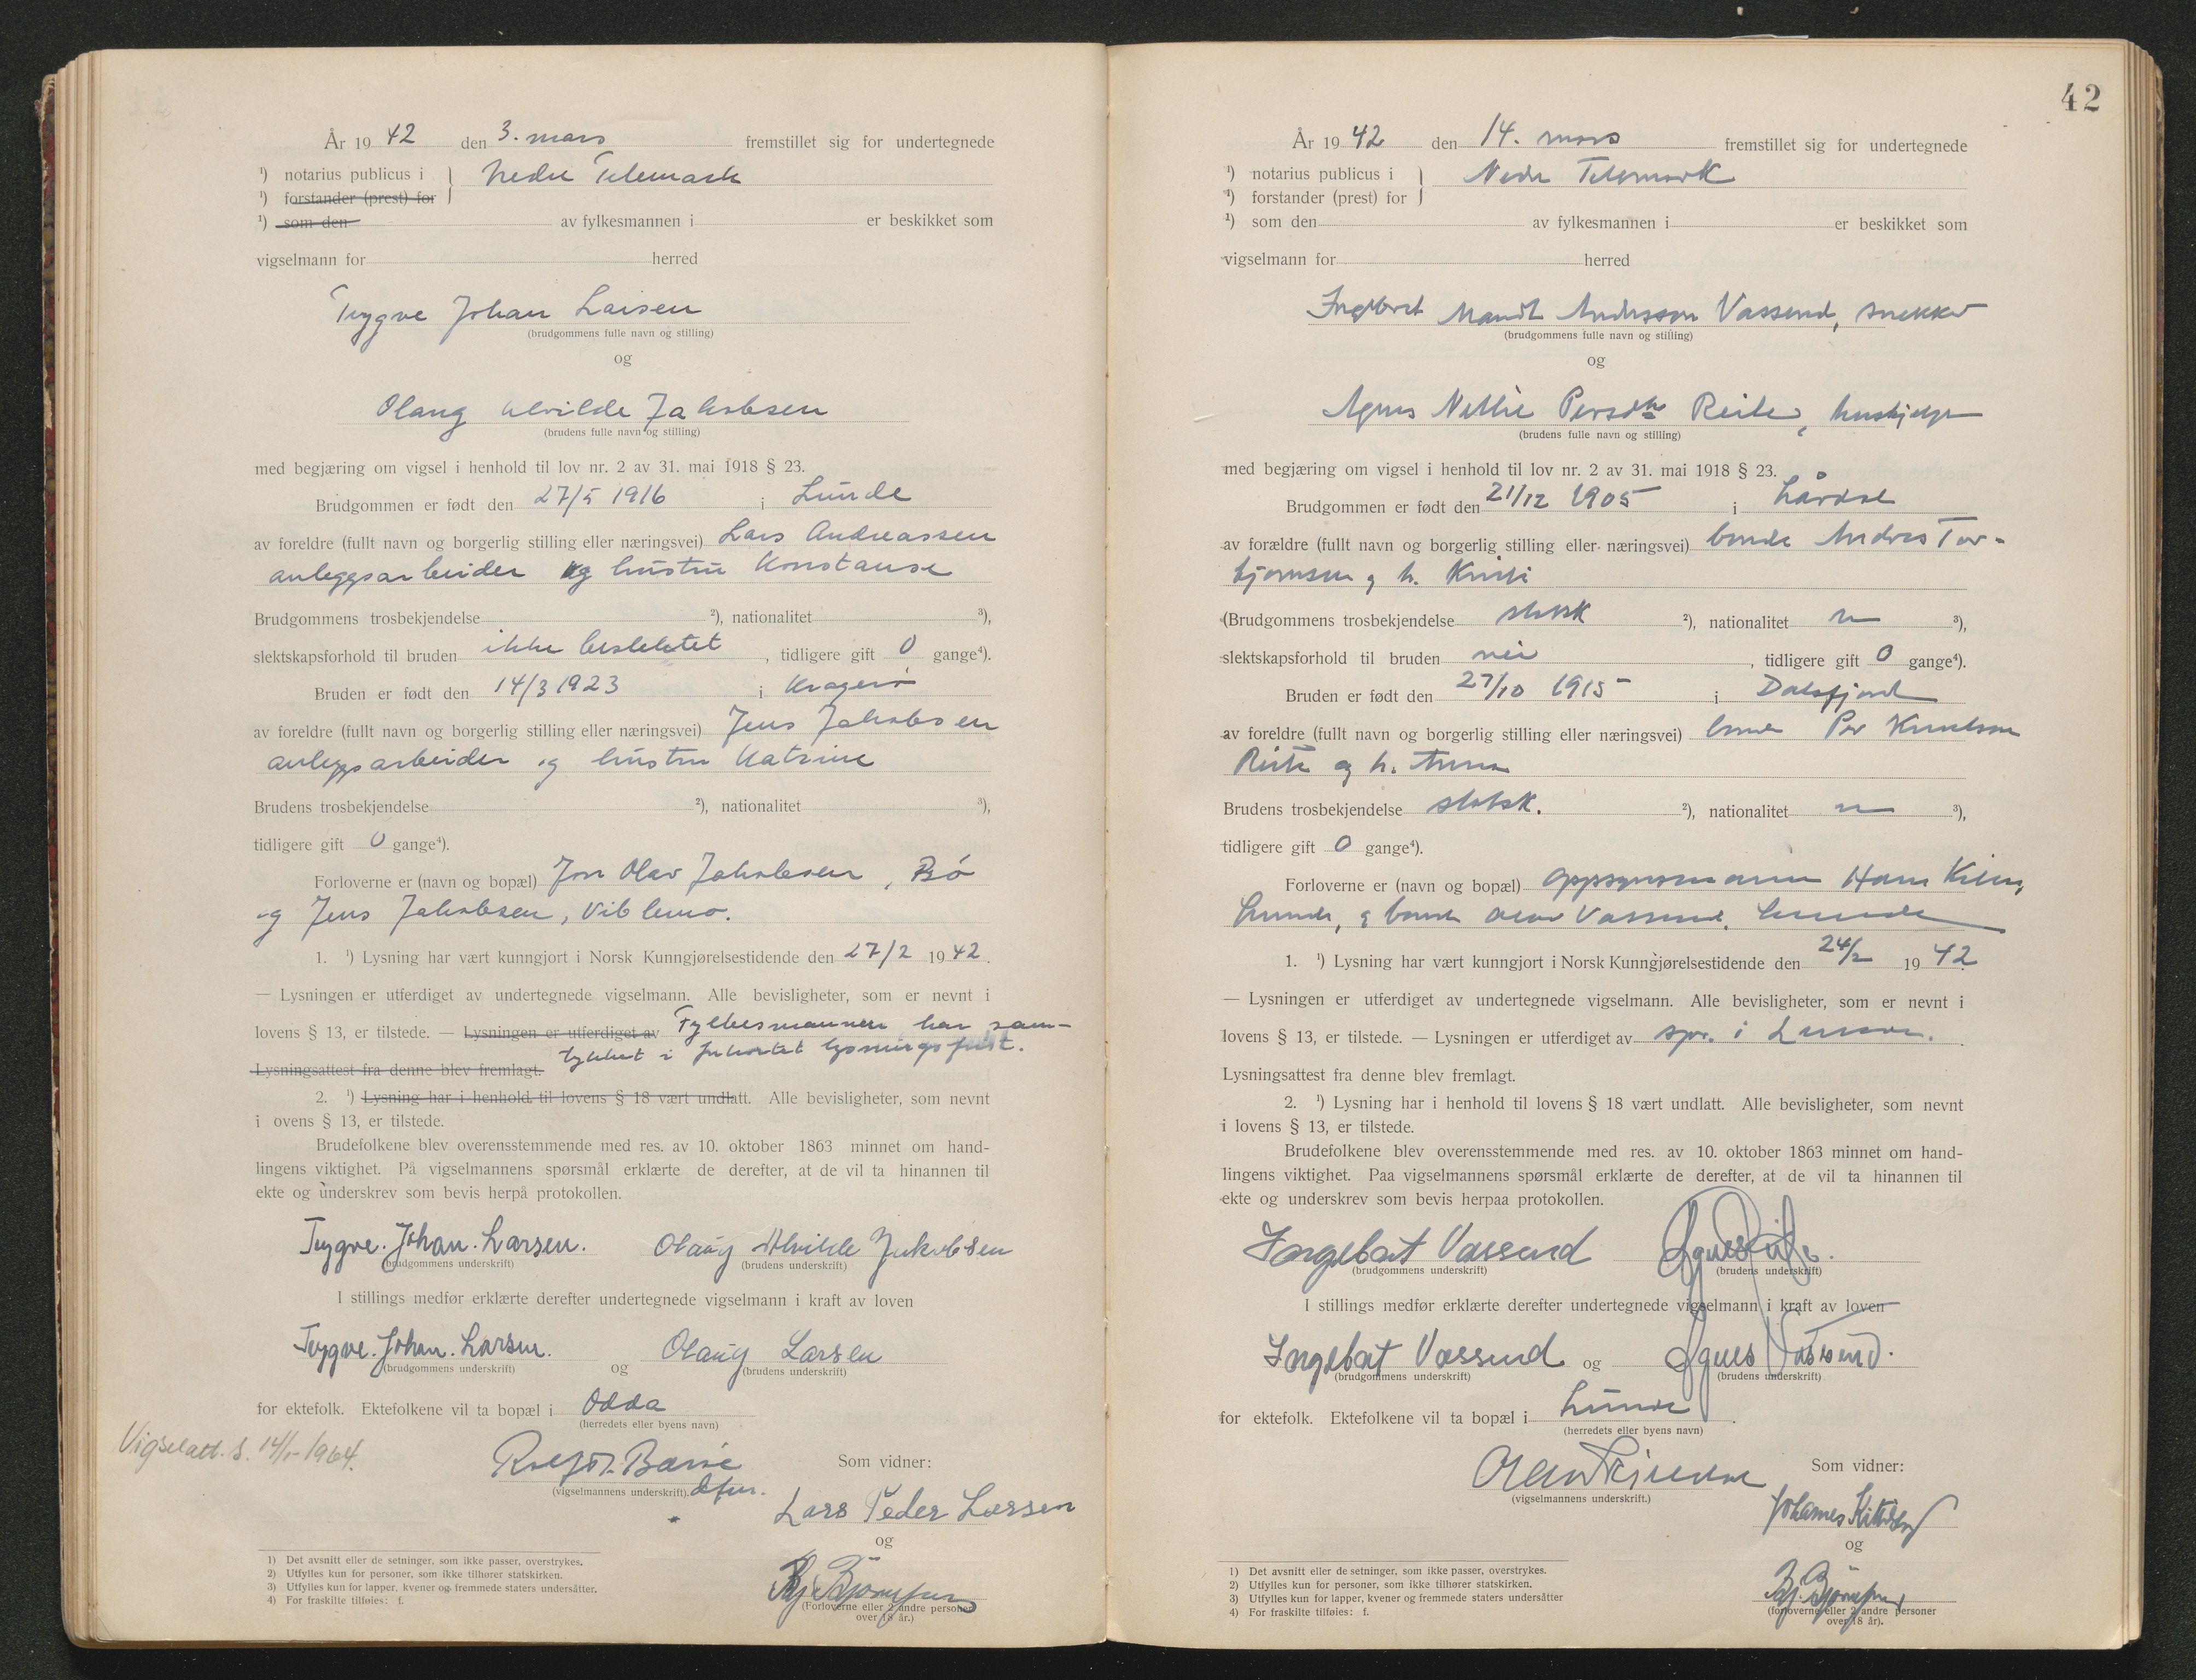 År 19 42 den 3. mars fremstillet sig for undertegnede
¹) notarius publicus i } Nedre Telemark
¹) forstander (prest) for
¹) som den av fylkesmannen i er beskikket som
vigselmann for herred
Trygve Johan Larsen
(brudgommens fulle navn og stilling)
og
Olaug Alvilde Jakobsen
(brudens fulle navn og stilling)
med begjæring om vigsel i henhold til lov nr. 2 av 31. mai 1918 § 23.
Brudgommen er født den 27/5 1916 i Lunde
av foreldre (fullt navn og borgerlig stilling eller næringsvei) Lars Andreassen
anleggsarbeider og hustru Konstanse
Brudgommens trosbekjendelse ²), nationalitet ³),
slektskapsforhold til bruden ikke beslektet, tidligere gift 0 gange⁴).
Bruden er født den 14/3 1923 i Kragerø
av foreldre (fullt navn og borgerlig stilling eller næringsvei) Jens Jakobsen
anleggsarbeider og hustru Katrine
Brudens trosbekjendelse ²), nationalitet ³),
tidligere gift 0 gange⁴).
Forloverne er (navn og bopæl) Jon Olav Jakobsen, Bø
og Jens Jakobsen, Viblemo.
1. ¹) Lysning har vært kunngjort i Norsk Kunngjørelsestidende den 27/2 1942.
— Lysningen er utferdiget av undertegnede vigselmann. Alle bevisligheter, som er nevnt i
lovens § 13, er tilstede. — Lysningen er utferdiget av Fylkesmannen har sam-
tykket i forkortet lysningsfrist.
Lysningsattest fra denne blev fremlagt.
2. ¹) Lysning har i henhold til lovens § 18 vært undlatt. Alle bevisligheter, som nevnt
i ovens § 13, er tilstede.
Brudefolkene blev overensstemmende med res. av 10. oktober 1863 minnet om hand-
lingens viktighet. På vigselmannens spørsmål erklærte de derefter, at de vil ta hinannen til
ekte og underskrev som bevis herpå protokollen.
Trygve. Johan. Larsen. Olaug Alvilde Jakobsen
(brudgommens underskrift) (brudens underskrift)
I stillings medfør erklærte derefter undertegnede vigselmann i kraft av loven
Trygve. Johan. Larsen. og Olaug Larsen
(brudgommens underskrift) (brudens underskrift)
for ektefolk. Ektefolkene vil ta bopæl i Odda
(herredets eller byens navn)
Vigselatt. s. 1964.
Som vidner:
(vigselmannens underskrift).
Lars Peder Larsen
og
(Forloverne eller 2 andre personer
over 18 år.)
1) Det avsnitt eller de setninger, som ikke passer, overstrykes.
2) Utfylles kun for personer, som ikke tilhører statskirken.
3) Utfylles kun for lapper, kvener og fremmede staters undersåtter.
4) For fraskilte tilføies: f.
42
År 19 42 den 14. mars fremstillet sig for undertegnede
¹) notarius publicus i } Nedre Telemark
¹) forstander (prest) for
¹) som den av fylkesmannen i er beskikket som
vigselmann for herred
Ingebret Mandt Andersson Vassend, snekker
(brudgommens fulle navn og stilling)
og
Agnes Nellie Persdtr Reite, hushjelp
(brudens fulle navn og stilling)
med begjæring om vigsel i henhold til lov nr. 2 av 31. mai 1918 § 23.
Brudgommen er født den 21/12 1905 i Lårdal
av forældre (fullt navn og borgerlig stilling eller næringsvei) bonde Andres Tor-
bjørnsen og h. Kristi
(Brudgommens trosbekjendelse statsk ²), nationalitet n ³),
slektskapsforhold til bruden nei, tidligere gift 0 gange⁴).
Bruden er født den 27/10 1915 i Dalsfjord
av foreldre (fullt navn og borgerlig stilling eller næringsvei) bonde Per Knutson
Reite og h. Anna
Brudens trosbekjendelse statsk. ²), nationalitet n ³),
tidligere gift 0 gange⁴).
Forloverne er (navn og bopæl) oppsynsmann Hans
Lunde, og bonde Olav Vassend, Lunde
1. ¹) Lysning har vært kunngjort i Norsk Kunngjørelsestidende den 24/2 19 42
— Lysningen er utferdiget av undertegnede vigselmann. Alle bevisligheter, som er nevnt i
lovens § 13, er tilstede. — Lysningen er utferdiget av spr. i Lunde.
Lysningsattest fra denne blev fremlagt.
2. ¹) Lysning har i henhold til lovens § 18 vært undlatt. Alle bevisligheter, som nevnt
i lovens § 13, er tilstede.
Brudefolkene blev overensstemmende med res. av 10. oktober 1863 minnet om hand-
lingens viktighet. Paa vigselmannens spørsmål erklærte de derefter, at de vil ta hinannen til
ekte og underskrev som bevis herpaa protokollen.
Ingebret Vassend Agnes Reite.
(brudgommens underskrift) (brudens underskrift)
I stillings medfør erklærte derefter undertegnede vigselmann i kraft av loven
Ingebret Vassend og Agnes Vassend.
(brudgommens underskrift) (brudens underskrift)
for ektefolk. Ektefolkene vil ta bopæl i Lunde.
(herredets eller byens navn)
Som vidner:
(vigselmannens underskrift.)
Johannes
og
(forloverne eller 2 andre personer
over 18 år).
1) Det avsnitt eller de setninger, som ikke passer, overstrykes.
2) Utfylles kun for personer, som ikke tilhører statskirken.
3) Utfylles kun for lapper, kvener og fremmede staters undersåtter
4) For fraskilte tilføies: f.